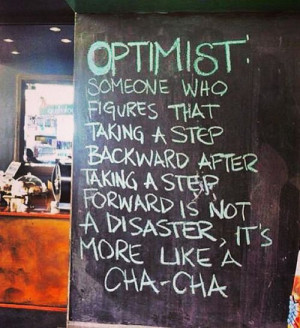 OPTIMIST:
SOMEONE WHO
FIGURES THAT
TAKING A STEP
BACKWARD AFTER
TAKING A STEP
FORWARD IS NOT
A DISASTER, IT'S
MORE LIKE A
CHA-CHA